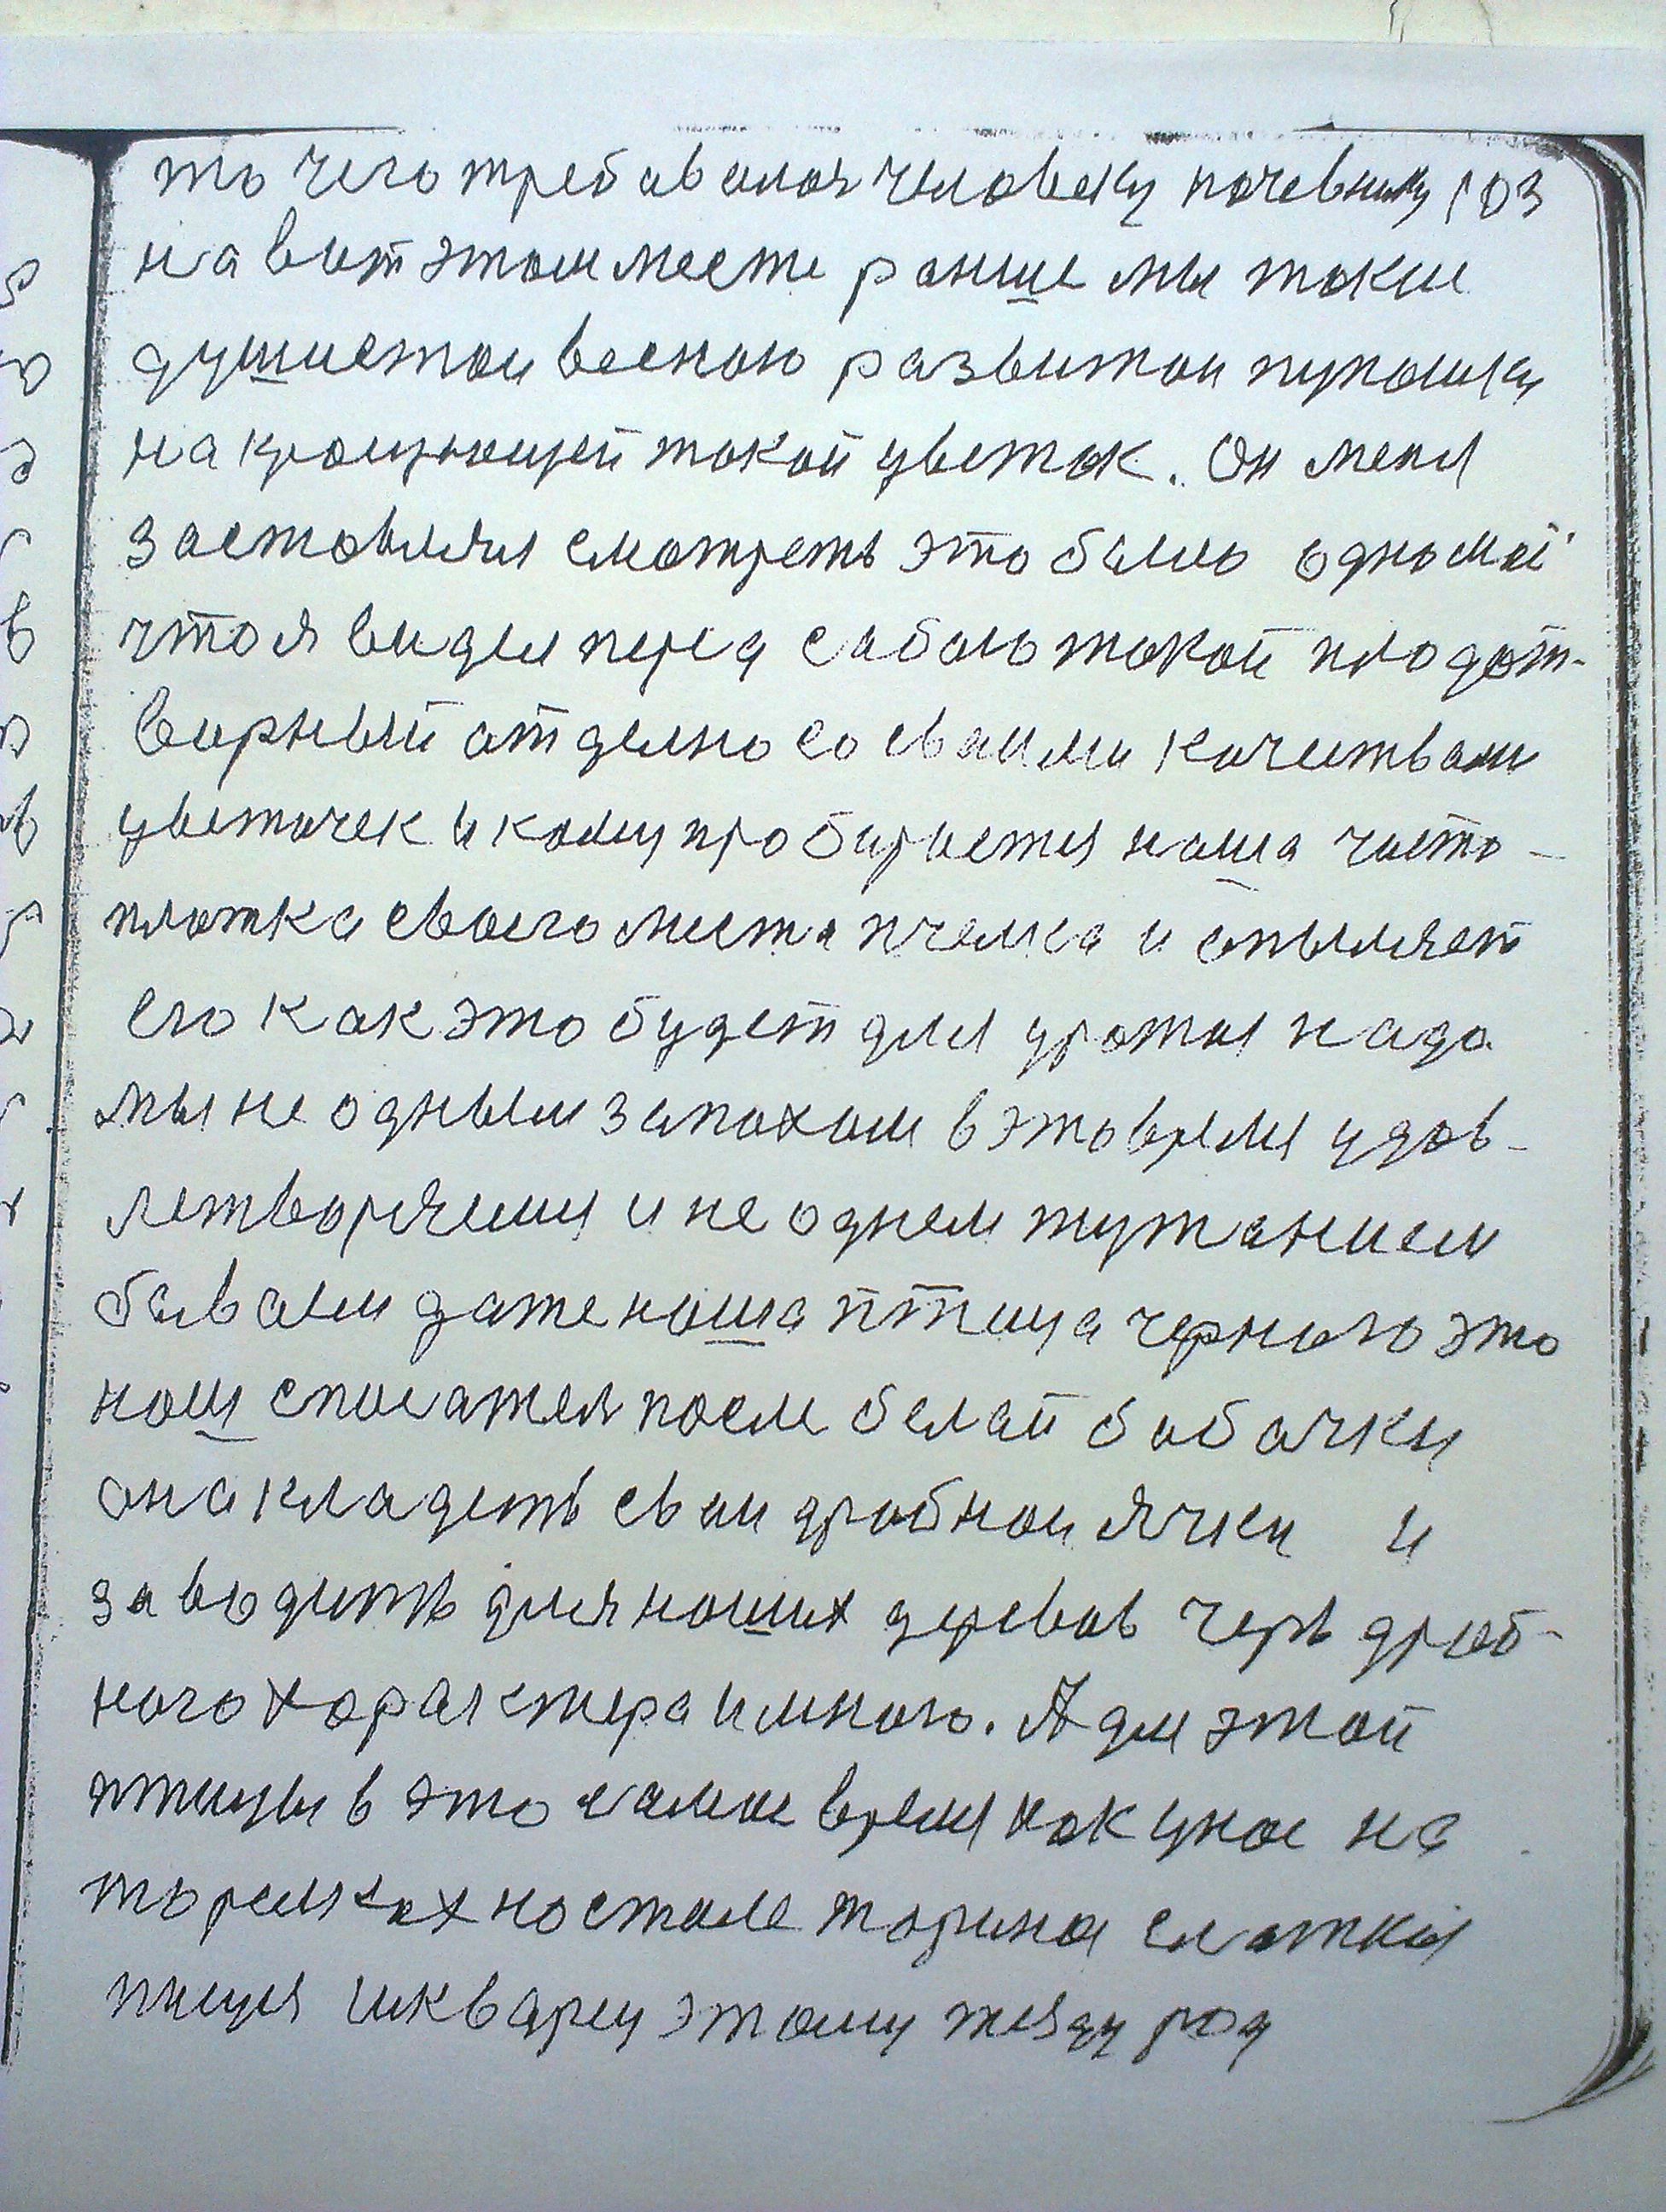 то чего требавалоя человеку кочевнику 103
на вит этом месте ранше мы такие
душистаи веснаю развитаи пупашку
на крошующей такой цветок. Он меня
заставлял смотреть это было одно мое
что я видел перед сабаю такой плодот-
ворный атделно со сваими качиствам
цветочек и кому пробираетя наша чисто-
плотка своего места пчелка и опыляет
его как это будет для уражая нада
мы не одным запахам в это время удов-
летворялимя и не однем
бывали даже наша птица чернаго это
наш спасатель после белай бабачки
она кладеть сваи дробнаи ячки и
заводить для наших деревав черв дроб-
ного характера и много. А для этай
птицы в это самае время как у нас на
тарелках на столе жарина слаткая
пища этому жезду род